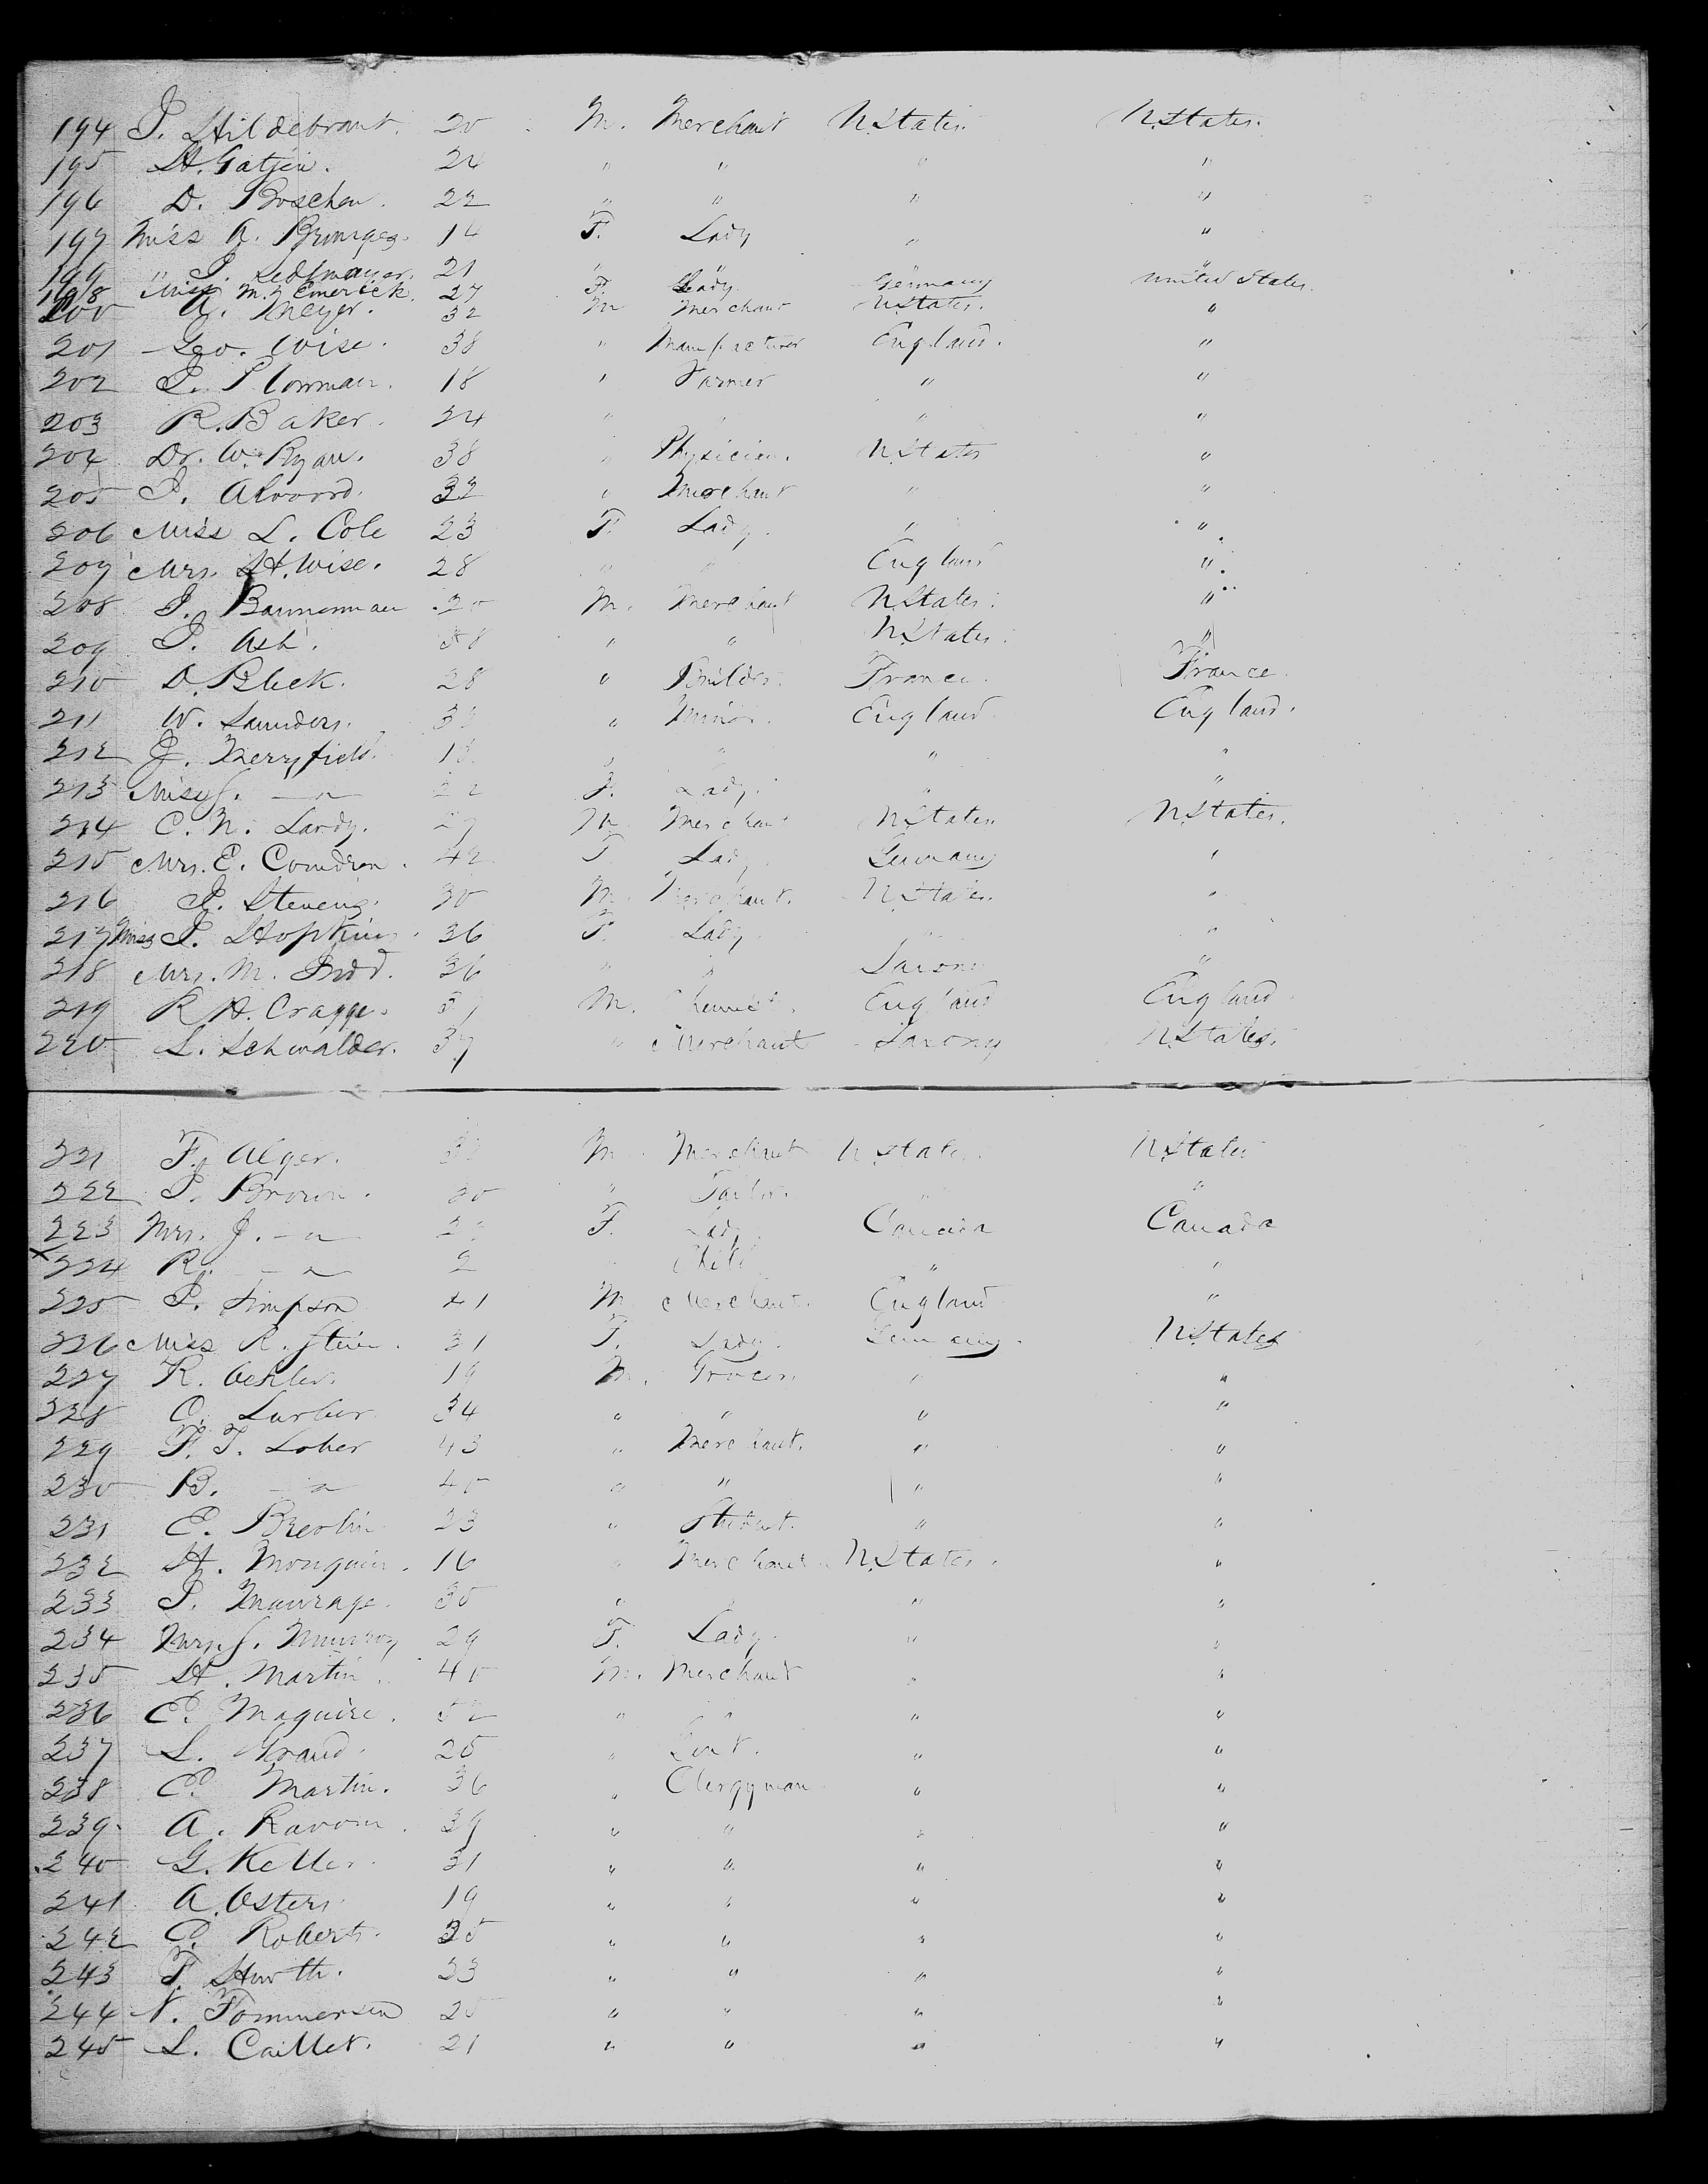 194 J. Hildebrant. 20 M. Merchant U.States. U.States.
195 H. Gatjen. 24 " " " "
196 D. Boschen. 22 " " " "
197 Miss A. 14 F. Lady " "
199 J. Sedlmayer. 21 " " " "
198 Miss M. Emerick. 27 F. Lady Germany United States.
200 A. Meyer. 32 M Merchant U.States. "
201 Geo. Wise. 38 " Manufacturer England. "
202 J. Plowman. 18 " Farmer " "
203 R. Baker. 24 " " " "
204 Dr. W. Ryan. 38 " Physician. U.States "
205 J. Alvord. 32 " Merchant " "
206 Miss L. Cole 23 F. Lady. " "
207 Mrs. H. Wise. 28 " " England "
208 J. Bannerman 20 M. Merchant U.States. "
209 J. Ash. " " U.States. "
210 D. Bleck. 28 " Builder. France. France.
211 W. Saunders. " Miner. England. England.
212 J. Merryfield. " " " "
213 Miss J. —"— 22 F. Lady. " "
214 C. N. Lardy. 27 M. Merchant U.States U.States.
215 Mrs. E. 42 F Lady Germany "
216 J. Stevens. 30 M. Merchant. U.States. "
217 Miss J. Hopkins. 36 F. Lady " "
218 Mrs. M. 36 " " Saxony "
219 R. H. Craggs. M. Chemist. England England.
220 L. Schwalder. 37 " Merchant Saxony U.States.
221 F. Alger. M Merchant U.States. U.States
222 J. Brown. 30 " Tailor. " "
223 Mrs. J. —"— F. Lady Canada Canada
x 224 R. —"— 2 " Child " "
225 J. Simpson 41 M Merchant. England "
226 Miss R. Stein. 31 F. Lady. Germany. U.States
227 R. Oehler. 19 M. Grocer. " "
228 O. Lurber 34 " " " "
229 F. T. Lober 43 " Merchant. " "
230 B. —"— 40 " " " "
231 E. 23 " Student. " "
232 H. Mouquin. 16 " Merchant U.States. "
233 J. Maurage. 30 " " " "
234 Mrs. J. Murray 29 F. Lady. " "
235 H. Martin. 40 M. Merchant " "
236 E. Maguire. 52 " " " "
237 L. Grand. 25 " Gent. " "
238 E. Martin. 36 " Clergyman " "
239. A. 39 " " " "
240 G. Keller. 31 " " " "
241 A. Osters 19 " " " "
242 E. Roberts. 35 " " " "
243 F. Hurth. 23 " " " "
244 N. Tommersen 25 " " " "
245 L. Caillet. 21 " " " "